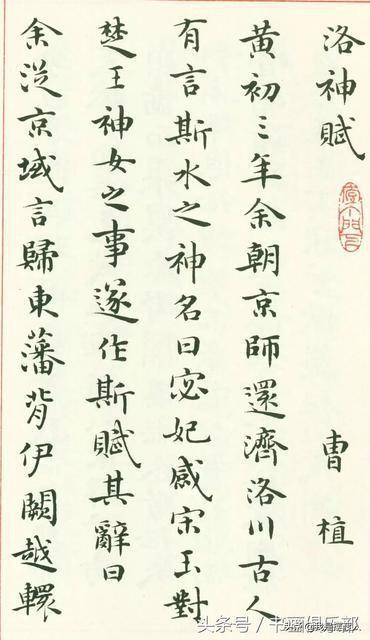 洛神賦 曹植
黄初三年余朝京師還濟洛川古人
有言斯水之神名曰宓妃感宋玉對
楚王神女之事遂作斯賦其辭曰
余從京域言歸東藩背伊闕越轘
头条号 / 书画俱乐部